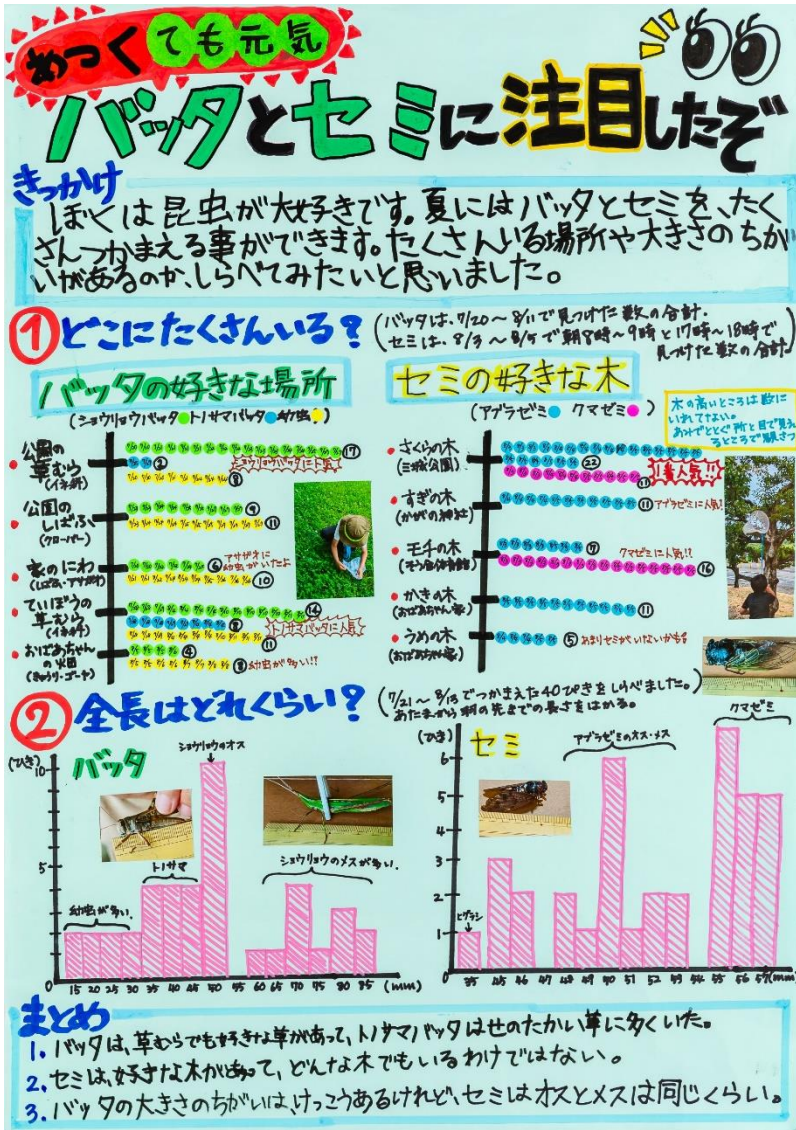 あつくても元気
バッタとセミに注目したぞ
きっかけ
ぼくは昆虫が大好きです。夏にはバッタとセミを、たく
さんつかまえる事ができます。たくさんいる場所や大きさのちが
いがあるのか、しらべてみたいと思いました。
①どこにたくさんいる?
(バッタは、7/20〜8/11で見つけた数の合計.
セミは、8/3〜8/5で朝8時〜9時と17時〜18時で
見つけた数の合計.)
バッタの好きな場所
(ショウリョウバッタ●トノサマバッタ●幼虫●)
公園の
草むら
(イネ科)
⑰
②
ショウリョウバッタに人気
⑧
公園の
しばふ
(クローバー)
⑨
⑪
家のにわ
(しばふ・アサガオ)
⑥
アサガオに
幼虫がいたよ
⑩
ていぼうの
草むら
(イネ科)
⑭
⑧
トノサマバッタに人気
⑪
おばあちゃん
の畑
(きゅうり・ゴーヤ)
④
⑧
幼虫が多い!?
セミの好きな木
(アブラゼミ● クマゼミ●)
木の高いところは数に
いれてない。
さくらの木
(三城公園)
㉒
1番人気!!
すぎの木
⑪
アブラゼミに人気!
モチの木
⑦
クマゼミに人気!?
⑯
かきの木
(おばあちゃん家)
⑪
うめの木
(おばあちゃん家)
⑤
あまりセミがいないかも?
②全長はどれくらい?
(7/21〜8/13でつかまえた40ぴきをしらべました。
あたまから羽の先までの長さをはかる。)
バッタ
(ひき)
10
5
0
ショウリョウのオス
トノサマ
幼虫が多い.
ショウリョウのメスが多い.
15 20 25 30 35 40 45 50 55 60 65 70 75 80 85 (mm)
セミ
(ひき)
6
5
4
3
2
1
0
ヒグラシ
アブラゼミのオス・メス
クマゼミ
35 45 46 47 48 49 50 51 52 53 54 55 56 57 (mm)
まとめ
1. バッタは、草むらでも好きな草があって、トノサマバッタはせのたかい草に多くいた。
2. セミは、好きな木があって、どんな木でもいるわけではない。
3. バッタの大きさのちがいは、けっこうあるけれど、セミはオスとメスは同じくらい。